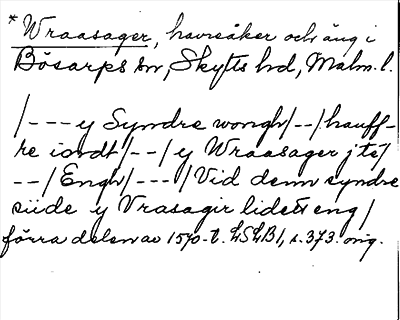 * Wraasager, havreåker och äng i
Bösarps sn, Skytts hd, Malm. l.
/---y Syndre wongh/--/hauff-
re iordt/--/y Wraasager jte/
--/Engh/---/Vid denn syndre
siide y Vrasagir lidett eng/
förra delen av 1570-t. LSLB1, s. 373. orig.